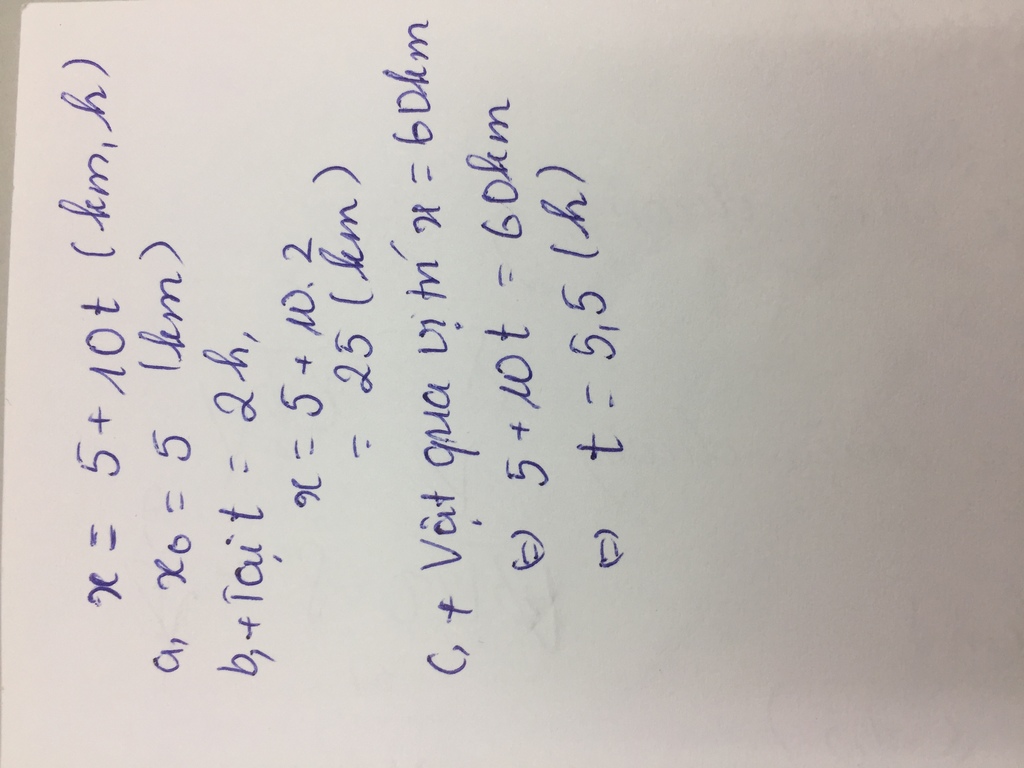 x = 5 + 10t (km, h)
a, x₀ = 5 (km)
b, + Tại t = 2h,
x = 5 + 10.2
= 25 (km)
c, + Vật qua vị trí x = 60km
⇔ 5 + 10t = 60km
⇔ t = 5,5 (h)